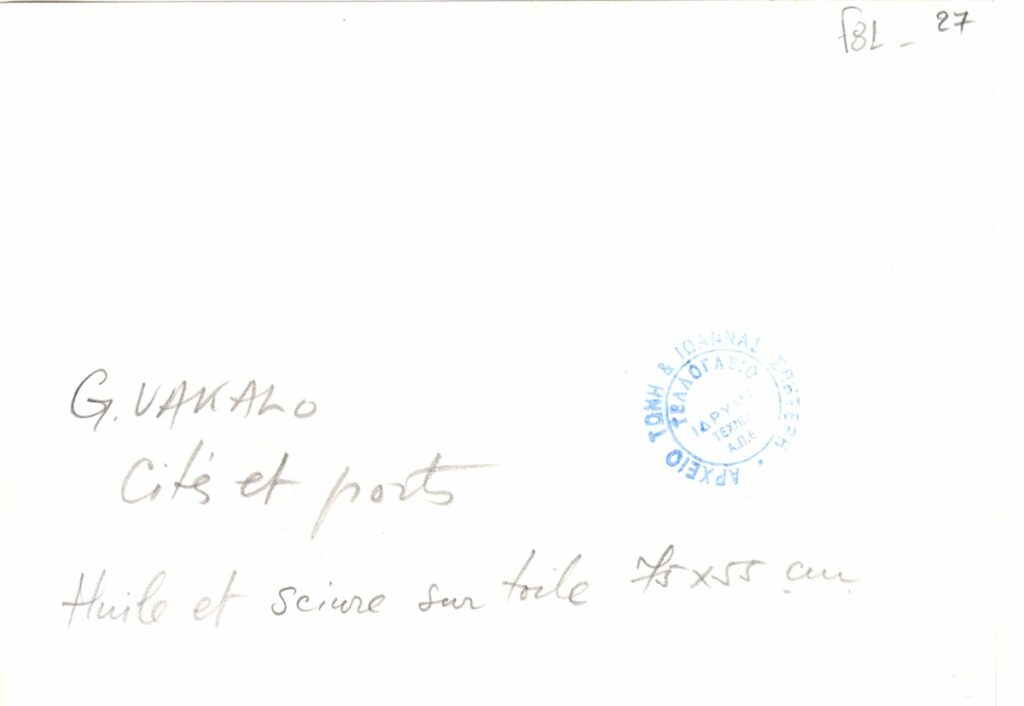 f8L - 27
ΑΡΧΕΙΟ ΤΩΝΗ & ΙΩΑΝΝΑΣ ΣΠΗΤΕΡΗ
ΤΕΛΛΟΓΛΕΙΟ
ΙΔΡΥΜΑ
ΤΕΧΝΩΝ
Α.Π.Θ
G. VAKALO
Cités et ports
Huile et sciure sur toile 75x55 cm